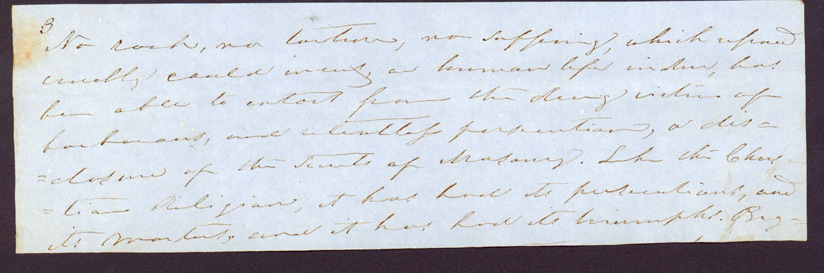 3
No rack, no torture, no suffering, which refined
cruelty could invent, or human life endure, has
been able to extort from the dying victim of
barbarous, and relentless persecution, a dis=
=closure of the secrets of Masonry. Like the Chris=
=tian Religion, it has had its persecutions, and
its martyrs, and it has had its triumphs. Big=